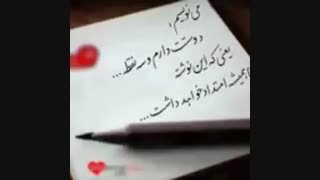 می نویسم،
دوستت دارم و سه نقطه...
یعنی که این نوشته
همیشه امتداد خواهد داشت...